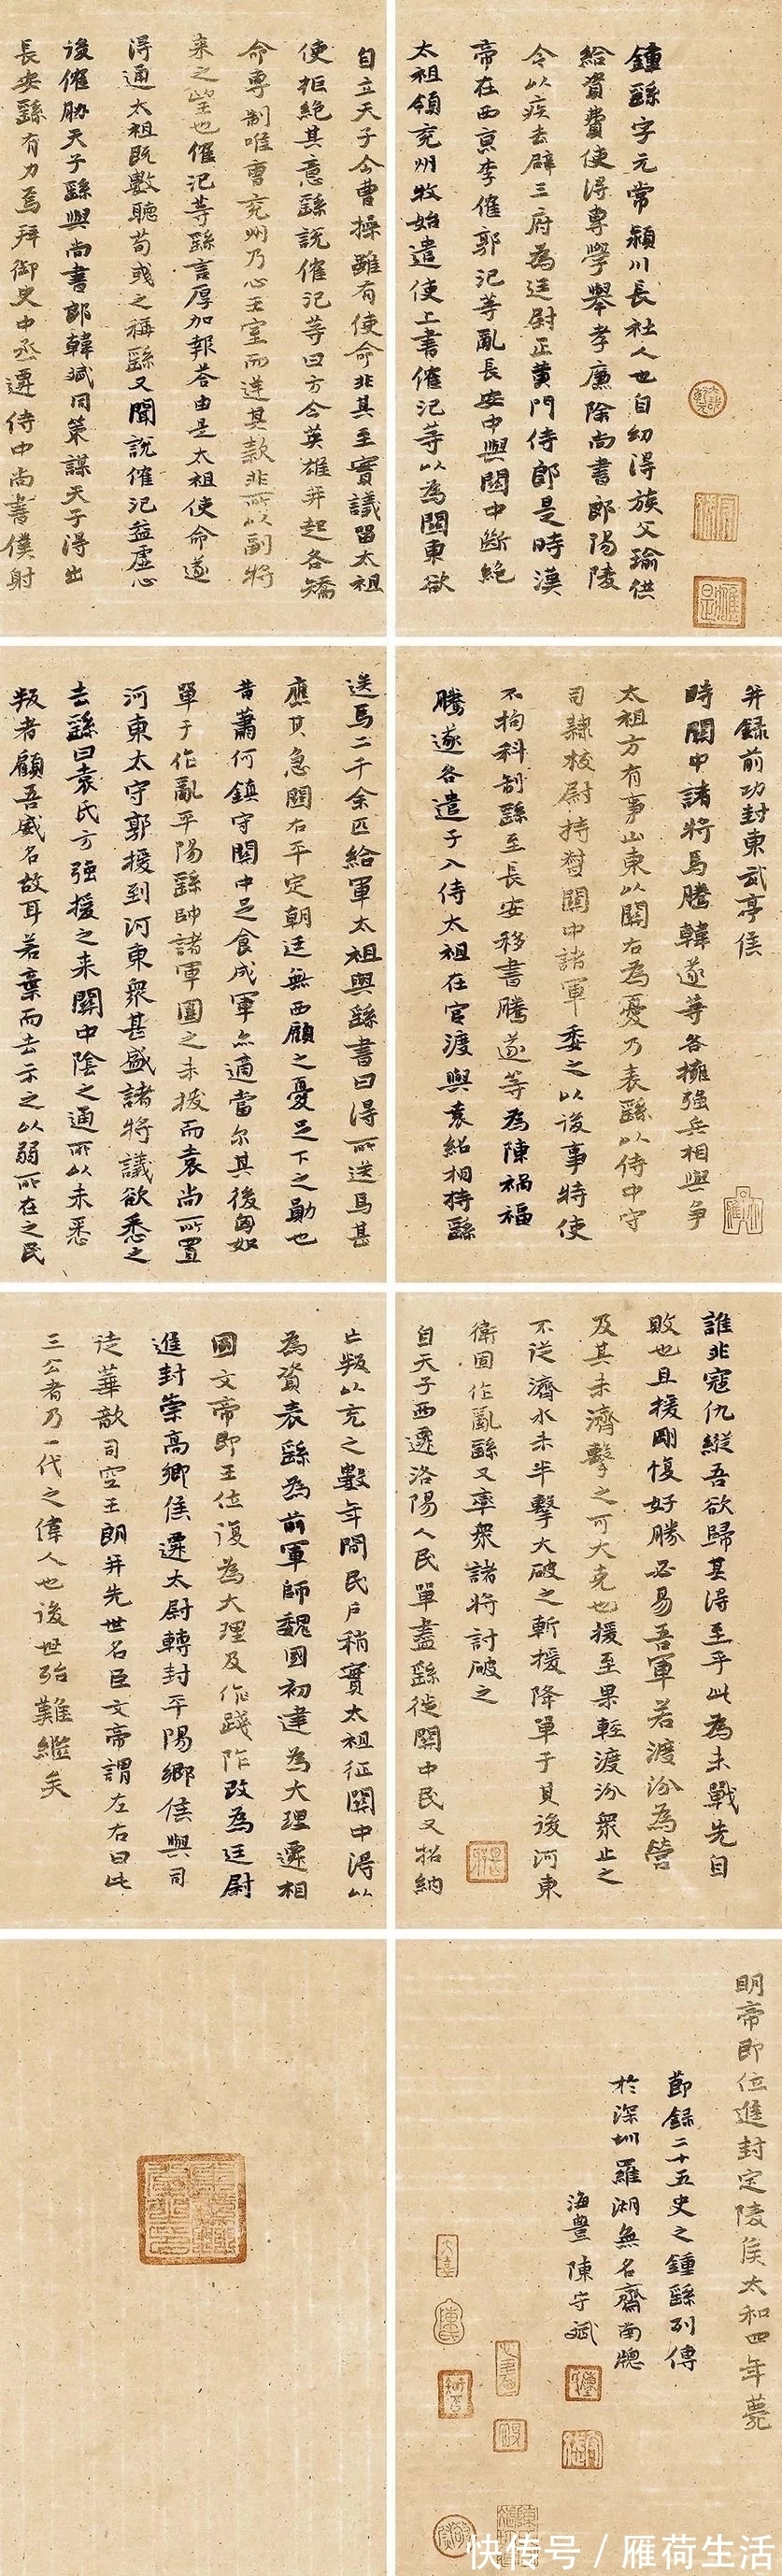 鍾繇字元常潁川長社人也自幼得族父瑜供
給資費使得專學舉孝廉除尚書郎陽陵
令以疾去辟三府為廷尉正黃門侍郎是時漢
帝在西京李傕郭汜等亂長安中與關中斷絕
太祖領兗州牧始遣使上書傕汜等以為關東欲
自立天子今曹操雖有使命非其至實議留太祖
使拒絕其意繇說傕汜等曰方今英雄并起各矯
命專制唯曹兗州乃心王室而逆其款非所以副將
來之望也傕汜等繇言厚加報答由是太祖使命遂
得通太祖既數聽荀彧之稱繇又聞說傕汜益虛心
後傕脅天子繇與尚書郎韓斌同策謀天子得出
長安繇有力焉拜御史中丞遷侍中尚書僕射
并録前功封東武亭侯
時關中諸將馬騰韓遂等各擁強兵相與爭
太祖方有事山東以關右為憂乃表繇以侍中守
司隸校尉持督關中諸軍委之以後事特使
不拘科制繇至長安移書騰遂等為陳禍福
騰遂各遣子入侍太祖在官渡與袁紹相持繇
送馬二千余匹給軍太祖與繇書曰得所送馬甚
應其急關右平定朝廷無西顧之憂足下之勛也
昔蕭何鎮守關中足食成軍亦適當尔其後匈奴
單于作亂平陽繇帥諸軍圍之未拔而袁尚所置
河東太守郭援到河東衆甚盛諸將議欲悉之
去繇曰袁氏方強援之来關中陰之通所以未悉
叛者顧吾威名故耳若棄而去示之以弱所在之民
誰非寇仇縱吾欲歸其得至乎此為未戰先自
敗也且援剛愎好勝必易吾軍若渡汾為營
及其未濟擊之可大克也援至果輕渡汾衆止之
不從濟水未半擊大破之斬援降單于其後河東
衛固作亂繇又率衆諸將討破之
自天子西遷洛陽人民單盡繇徙關中民又招納
亡叛以充之數年間民戶稍實太祖征關中得以
為資表繇為前軍師魏國初建為大理遷相
國文帝即王位復為大理及作踐阼改為廷尉
進封崇高鄉侯遷太尉轉封平陽鄉侯與司
徒華歆司空王朗并先世名臣文帝謂左右曰此
三公者乃一代之偉人也後世殆難繼矣
明帝即位進封定陵侯太和四年薨
節録二十五史之鍾繇列傳
於深圳羅湖無名齋南牕
海豐陳守斌
快传号 / 雁荷生活